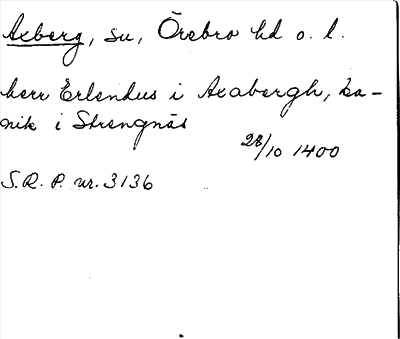 Axberg, sn, Örebro hd o. l.
herr Erlendus i Axabergh, ka-
nik i Strengnäs
28/10 1400
S.R.P. nr. 3136